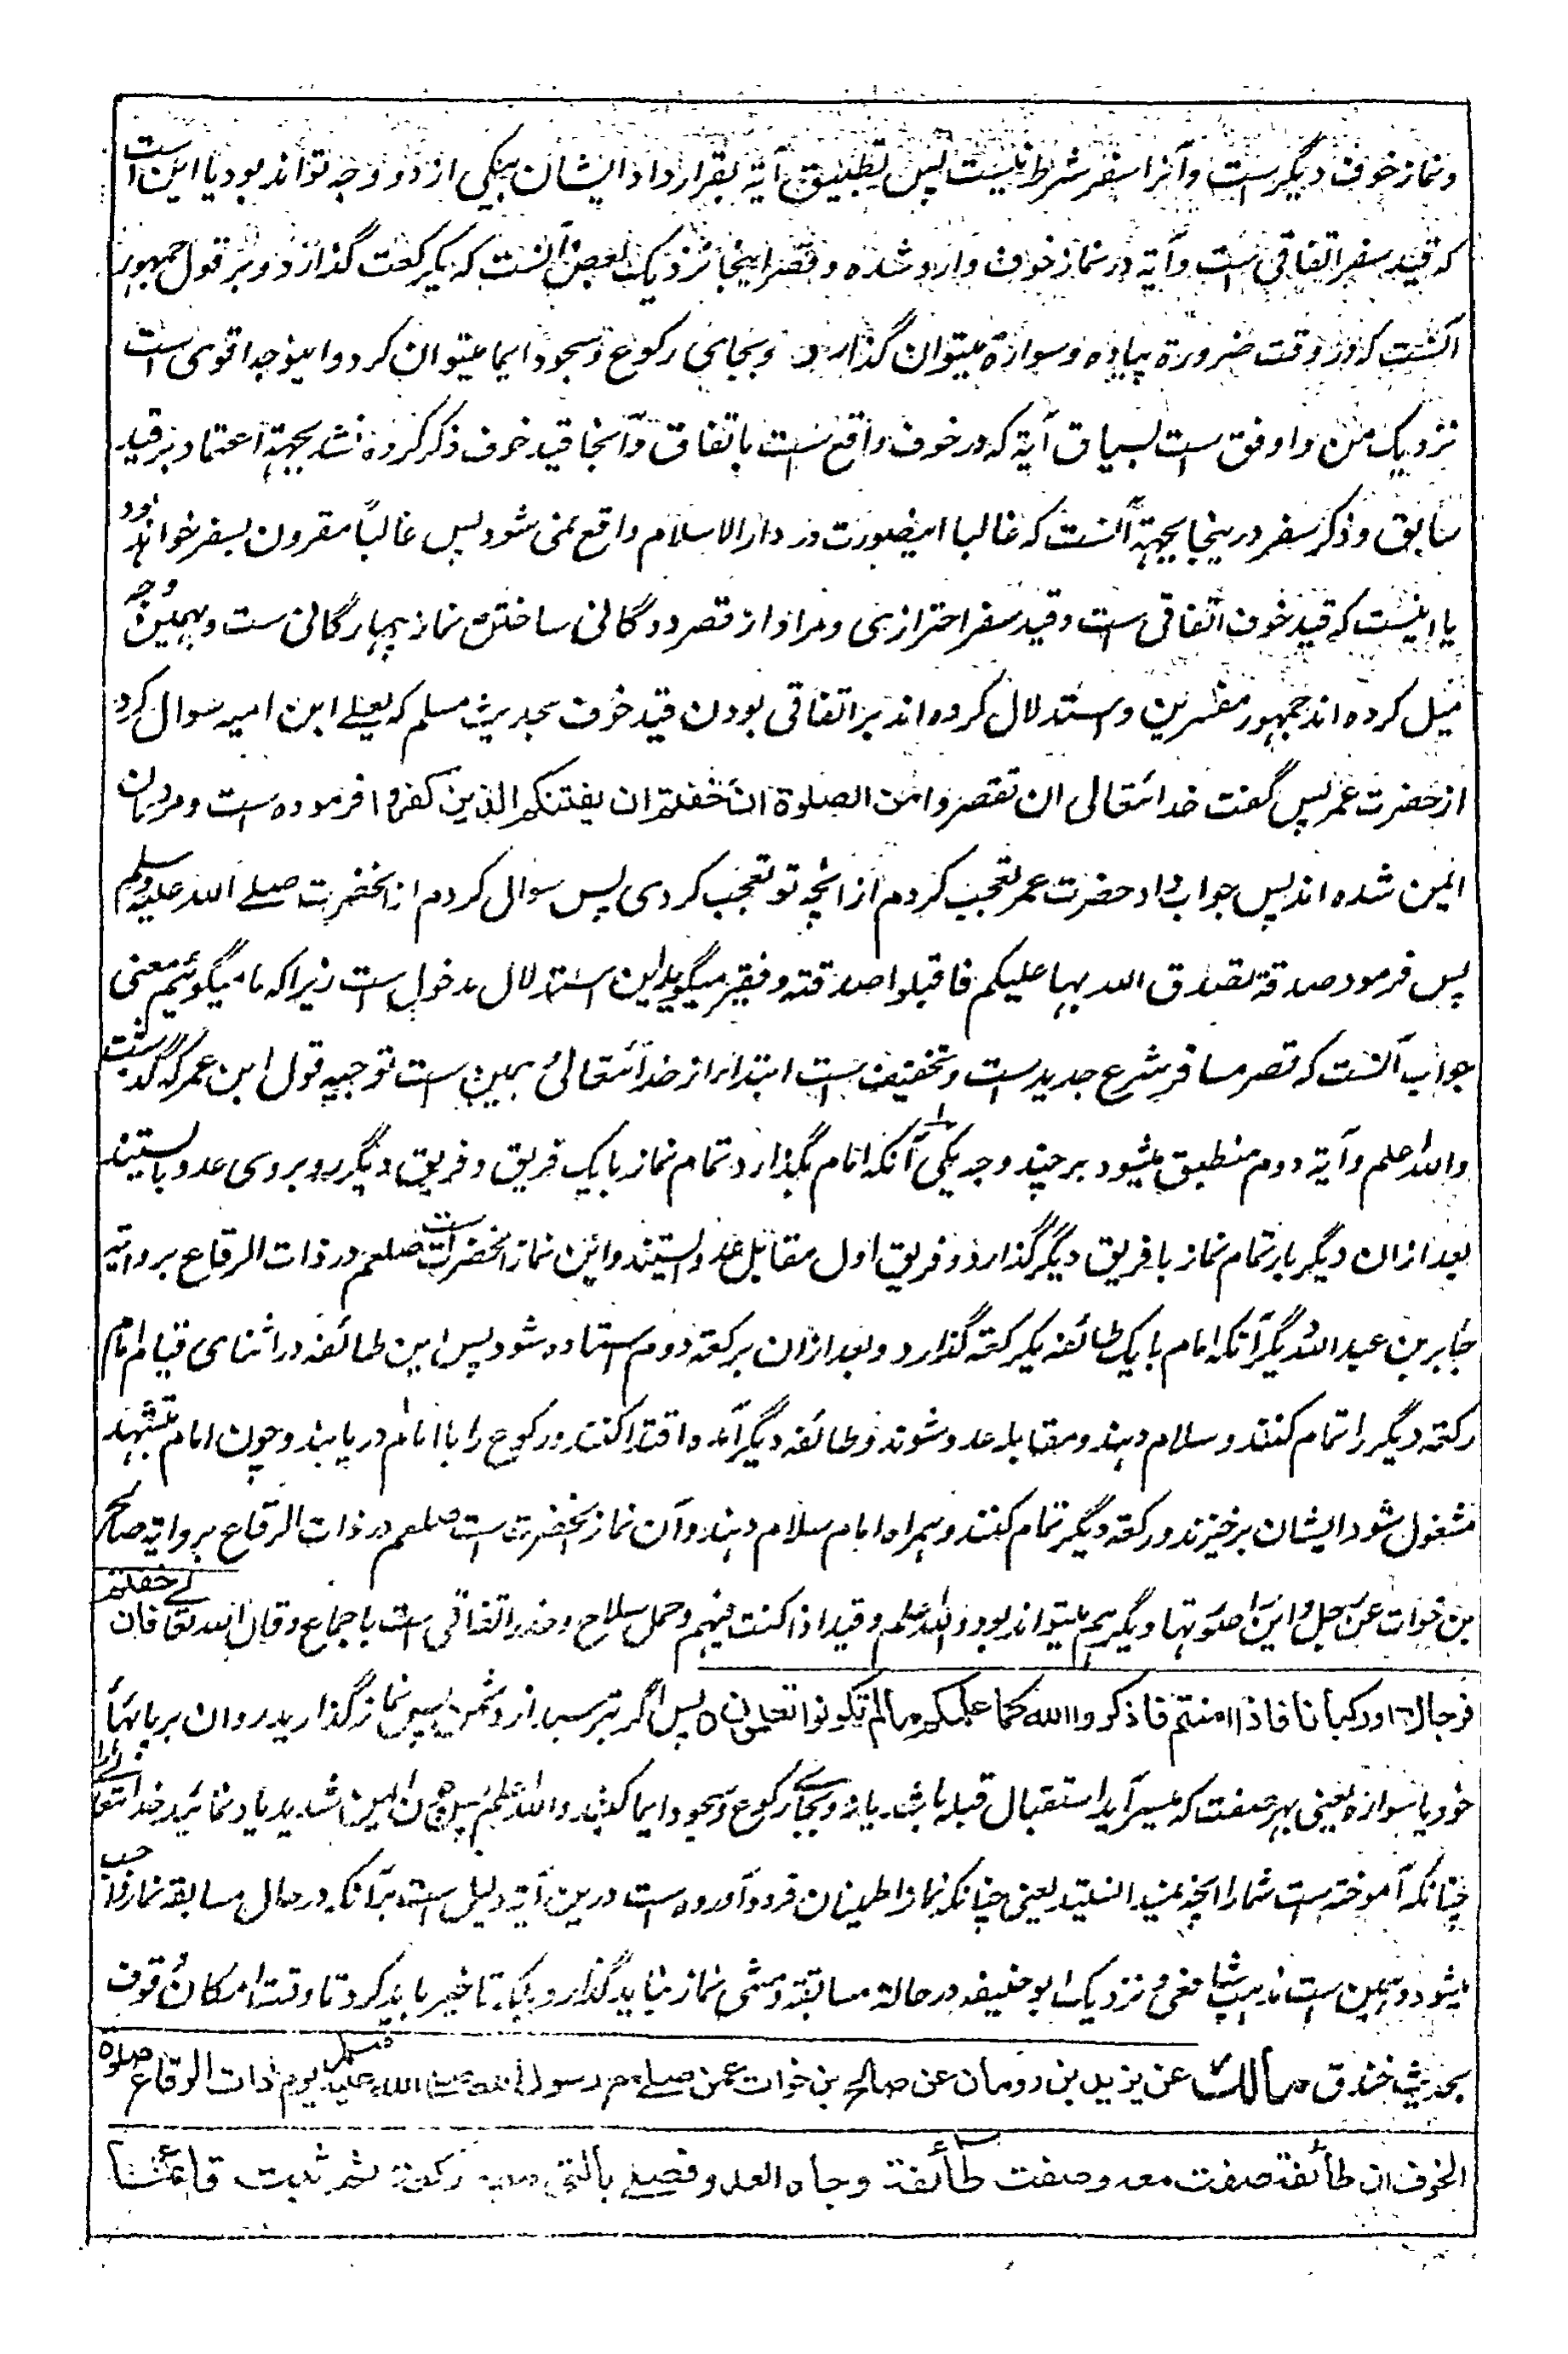 ونماز خوف دیگر ست وآنرا سفر شرط نیست پس تطبیق آیة بقرارداد ایشان بیکی از دو وجه تواند بود یا این است
که قید سفر اتفاقی است وآیة در نماز خوف وارد شده وقصر اینجا نزدیک بعض آنست که یکرکعت گذارد وبر قول جمهور
آنست که در وقت ضرورة پیاده وسوارة میتوان گذارد وبجای رکوع وسجود ایما میتوان کرد واینوجه اقوی است
نزدیک من واوفق ست بسیاق آیة که در خوف واقع ست باتفاق وآنجا قید خوف ذکر کرده نشد بجهة اعتماد بر قید
سابق وذکر سفر درینجا بجهة آنست که غالبا اینصورت در دار الاسلام واقع نمی شود پس غالباً مقرون بسفر خواند بود
یا اینست که قید خوف اتفاقی ست وقید سفر احترازی ومراد از قصر دوگانی ساختن نماز چهارگانی ست وبهمین وجه
میل کرده اند جمهور مفسرین واستدلال کرده اند بر اتفاقی بودن قید خوف بحدیث مسلم که یعلے ابن امیه سوال کرد
از حضرت عمر پس گفت خدائتعالی ان تقصروا من الصلوة ان خفتم ان یفتنکم الذین کفروا فرموده ست ومردمان
ایمن شده اند پس جواب داد حضرت عمر تعجب کردم از انچه تو تعجب کردی پس سوال کردم از آنحضرت صلے الله علیه وسلم
پس فرمود صدقة تصدق الله بها علیکم فاقبلوا صدقته وفقیر میگوید این استدلال مدخول است زیرا که ما میگوئیم معنی
جواب آنست که قصر مسافر شرع جدید ست وتخفیف ست ابتداء از خدائتعالیٰ همین ست توجیه قول ابن عمر که گذشت
والله اعلم وآیة دوم منطبق میشود بر چند وجه یکی آنکه امام بگذارد تمام نماز با یک فریق وفریق دیگر روبروی عدو بایستند
بعد ازان دیگر بار تمام نماز با فریق دیگر گذارد وفریق اول مقابل عدو بایستند واین نماز آنحضرت ست صلعم در ذات الرقاع بروایة
جابر بن عبد الله دیگر آنکه امام با یک طائفه یکرکعة گذارد وبعد ازان برکعة دوم استاده شود پس این طائفه در اثنای قیام امام
رکعة دیگر را تمام کنند وسلام دهند ومقابله عدو شوند وطائفه دیگر آمده اقتدا کنند ورکوع را با امام دریابند وچون امام بتشهد
مشغول شود ایشان برخیزند ورکعة دیگر تمام کنند وهمراه امام سلام دهند وآن نماز آنحضرت است صلعم در ذات الرقاع بروایة صالح
بن خوات عن رجل واین صلوتها دیگر هم میتواند بود والله اعلم وقید اذا کنت فیهم وحمل سلاح وحذر اتفاقی ست باجماع وقال الله تعالے فان خفتم
فرجالا اورکبانا فاذا امنتم فاذکروا الله کما علمکم مالم تکونوا تعلمون ٥ پس اگر بترسید از دشمن پس نماز گذارید روان بر پایهاۓ
خود یا سواره یعنی بهر صفت که میسر آید استقبال قبله باشد یا نه وبجاے رکوع وسجود ایما کنید والله اعلم پس چون ایمن شدید یاد نمائید خدائتعالے را
چنانکه آموخته ست شمارا انچه نمیدانستید یعنی چنانکه نماز اطمینان فرود آورده ست درین آیة دلیل ست برآنکه در حال مسابقه نماز واجب
میشود وهمین ست مذهب شافعی ونزدیک ابو حنیفه در حالة مسابقة ومشی نماز نباید گذارد بلکه تاخیر باید کرد تا وقت امکان وقوف
بحدیث خندق مالك عن یزید بن رومان عن صالح بن خوات عمن صلے مع رسول الله صلے الله علیه وسلم یوم ذات الرقاع صلوة
الخوف ان طائفة صفت معه وصفت طائفة وجاه العدو فصلے بالتی معه رکعة ثم ثبت قائما